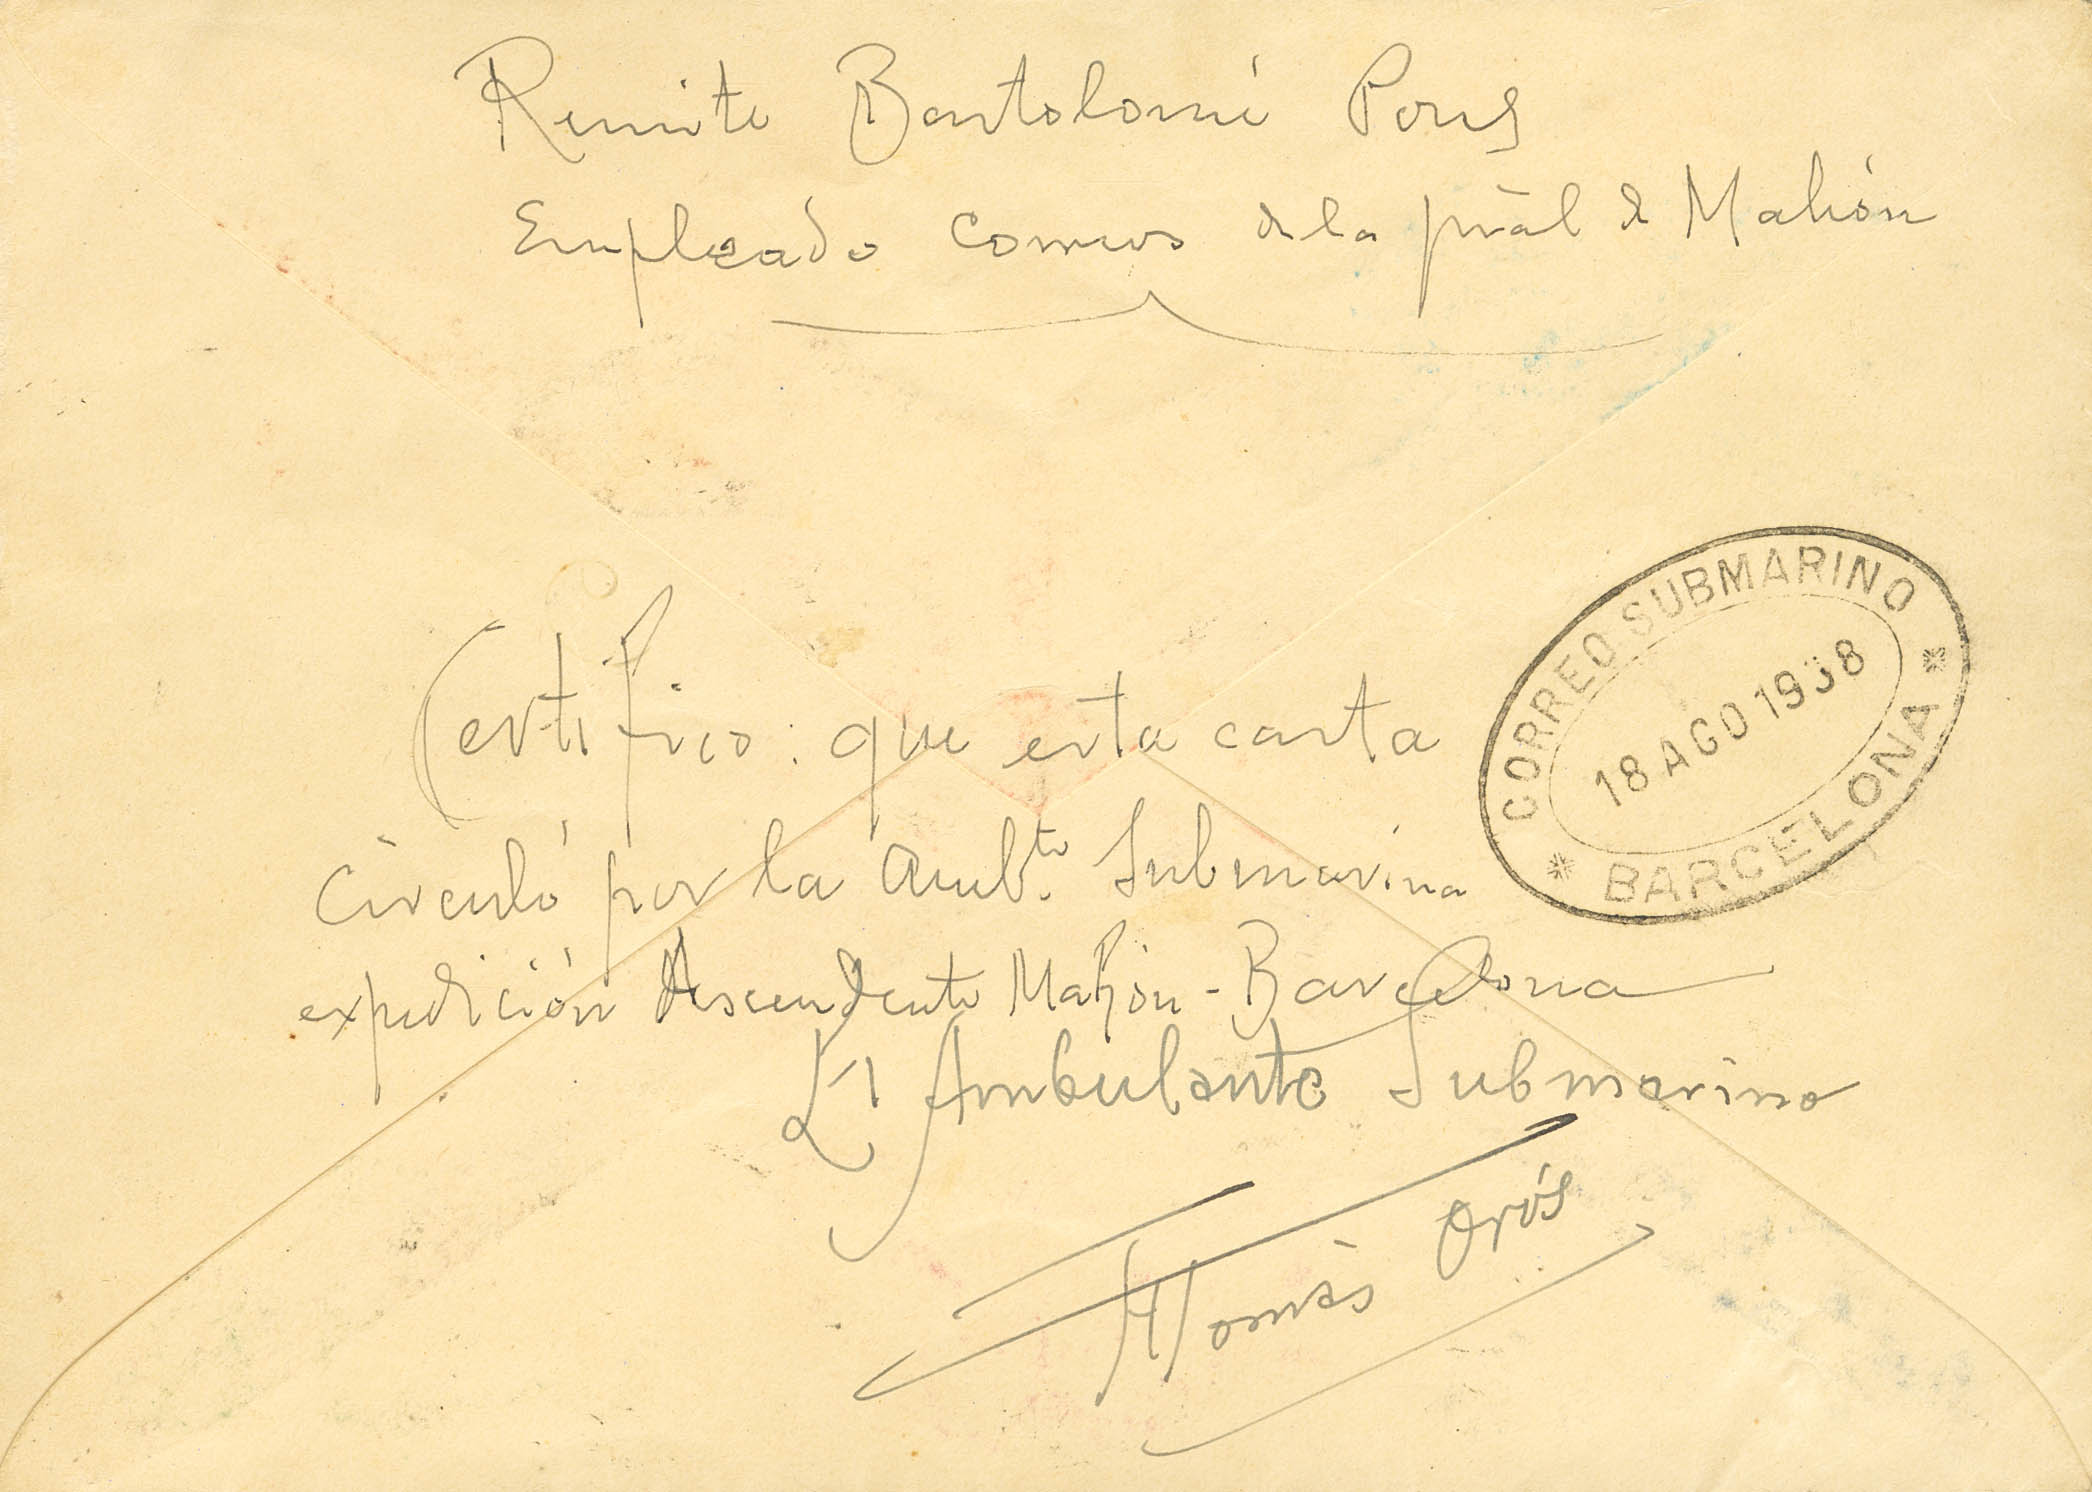 Remite Bartolomé Pons
Empleado Correos de la prãl de Mahón
Certifico: que esta carta
circuló por la Ambte. Submarina
expedición Ascendente Mahón-Barcelona
El Ambulante Submarino
Tomás Orós
CORREO SUBMARINO
18 AGO 1938
* BARCELONA *